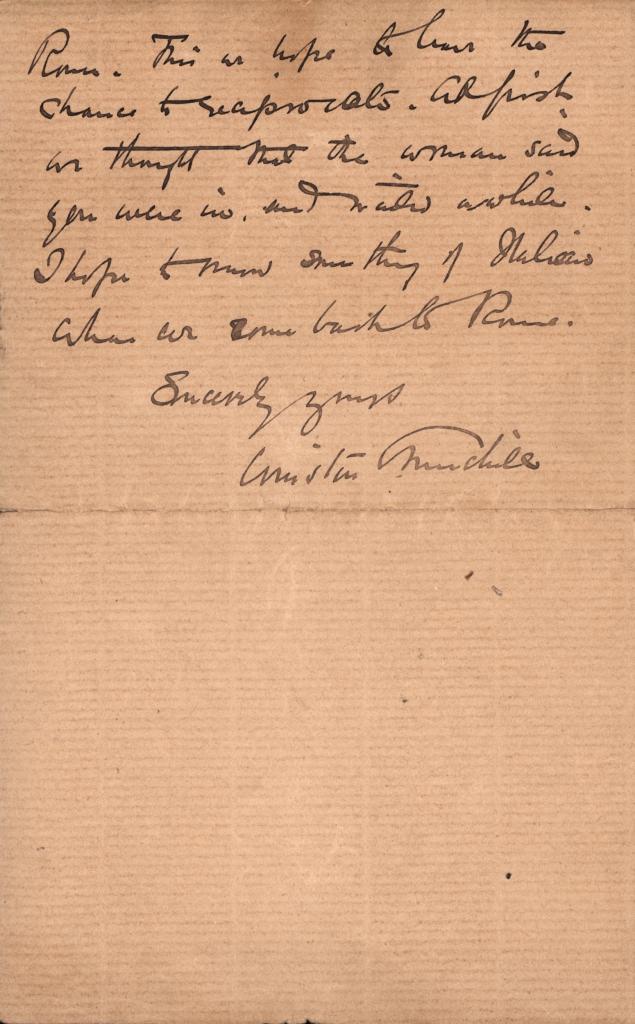 Rome. This we hope to have the
chance to reciprocate. At first
we thought that the woman said
you were in, and waited awhile.
I hope to know something of Italian
when we come back to Rome.
Sincerely yours
Winston Churchill